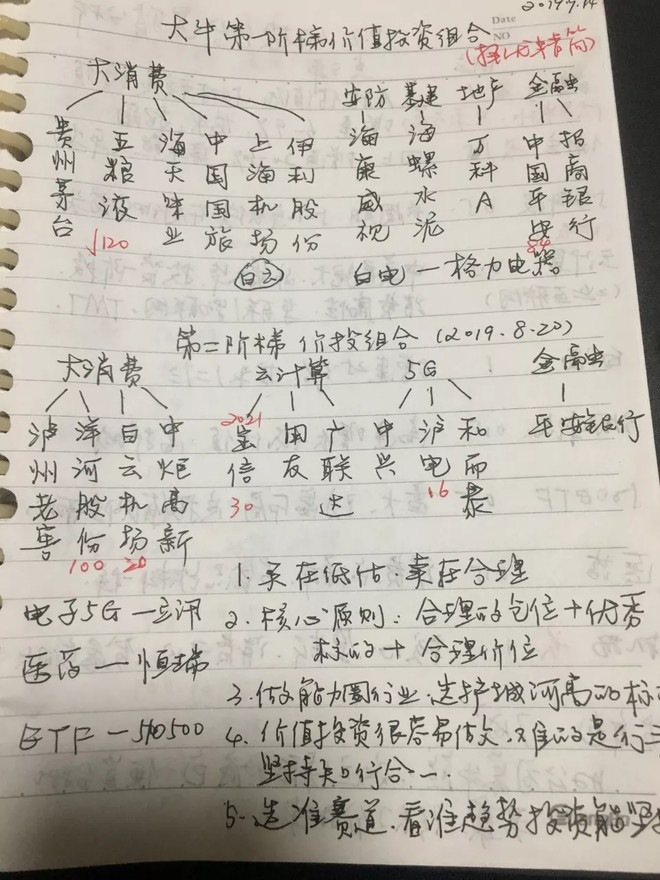 2019.9.14
Date
NO
大牛第一阶梯价值投资组合
大消费 安防 基建 地产 金融
贵州茅台 五粮液 海天味业 中国国旅 上海机场 伊利股份 海康威视 海螺水泥 万科A 中国平安 招商银行
120 84
白云 白电一格力电器
第二阶梯 价投组合 (2019.8.20)
大消费 云计算 5G 金融
泸州老窖 洋河股份 白云机场 中炬高新 宝信 用友 广联达 中兴 沪电 和而泰 平安银行
2021
100 20 30 16
1. 买在低估.卖在合理
电子5G一立讯
2. 核心原则: 合理的仓位+优秀
标的+合理价位
医药一恒瑞
3. 做能力圈行业.选护城河高的标
ETF-510500
4. 价值投资很容易做文.难的是行
坚持知行合一.
5. 选准赛道.看准趋势投资能坚